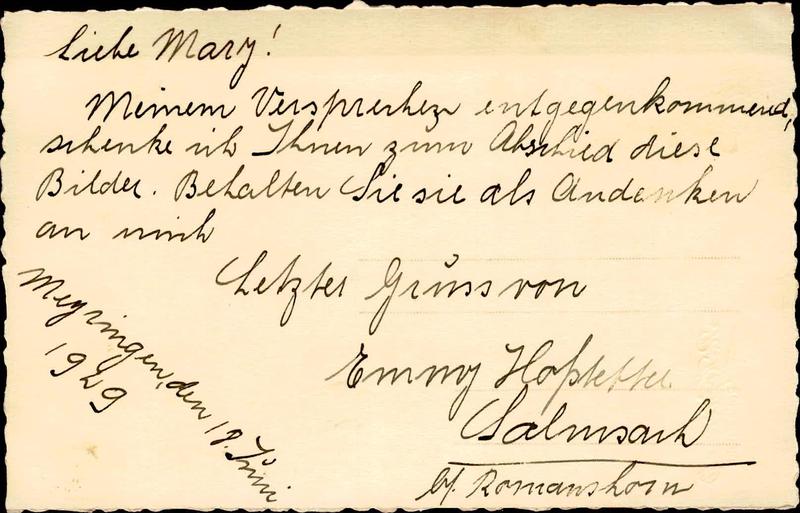 Liebe Mary!
Meinem Versprechen entgegenkommend,
schenke ich Ihnen zum Abschied diese
Bilder. Behalten Sie sie als Andenken
an mich
Letzter Gruss von
Emmy Hofstetter
Salmsach
b/. Romanshorn
Meyringen, den 18. Juni
1929